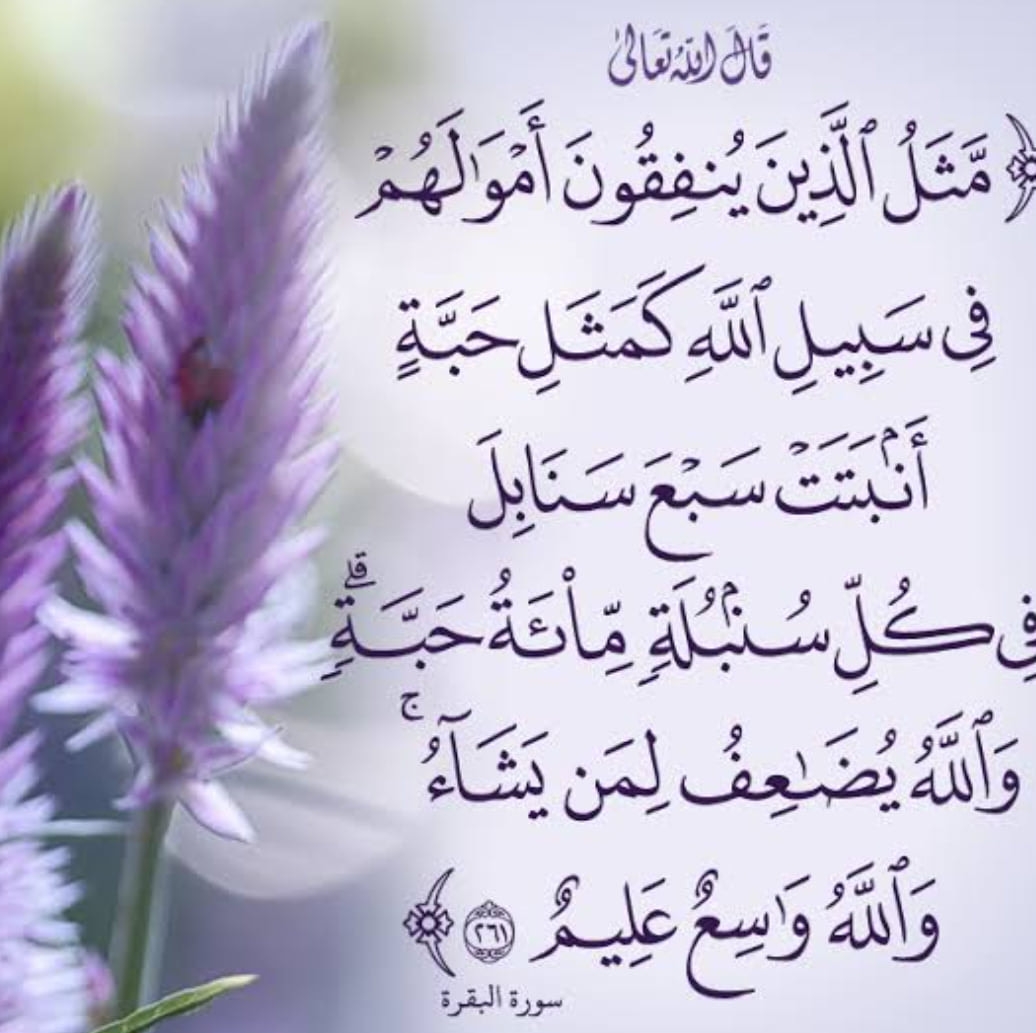 قَالَ اللَّهُ تَعَالَىٰ
﴿ مَّثَلُ ٱلَّذِينَ يُنفِقُونَ أَمْوَٰلَهُمْ
فِى سَبِيلِ ٱللَّهِ كَمَثَلِ حَبَّةٍ
أَنۢبَتَتْ سَبْعَ سَنَابِلَ
فِى كُلِّ سُنۢبُلَةٍ مِّا۟ئَةُ حَبَّةٍ ۗ
وَٱللَّهُ يُضَٰعِفُ لِمَن يَشَآءُ ۚ
وَٱللَّهُ وَٰسِعٌ عَلِيمٌ ٢٦١ ﴾
سورة البقرة